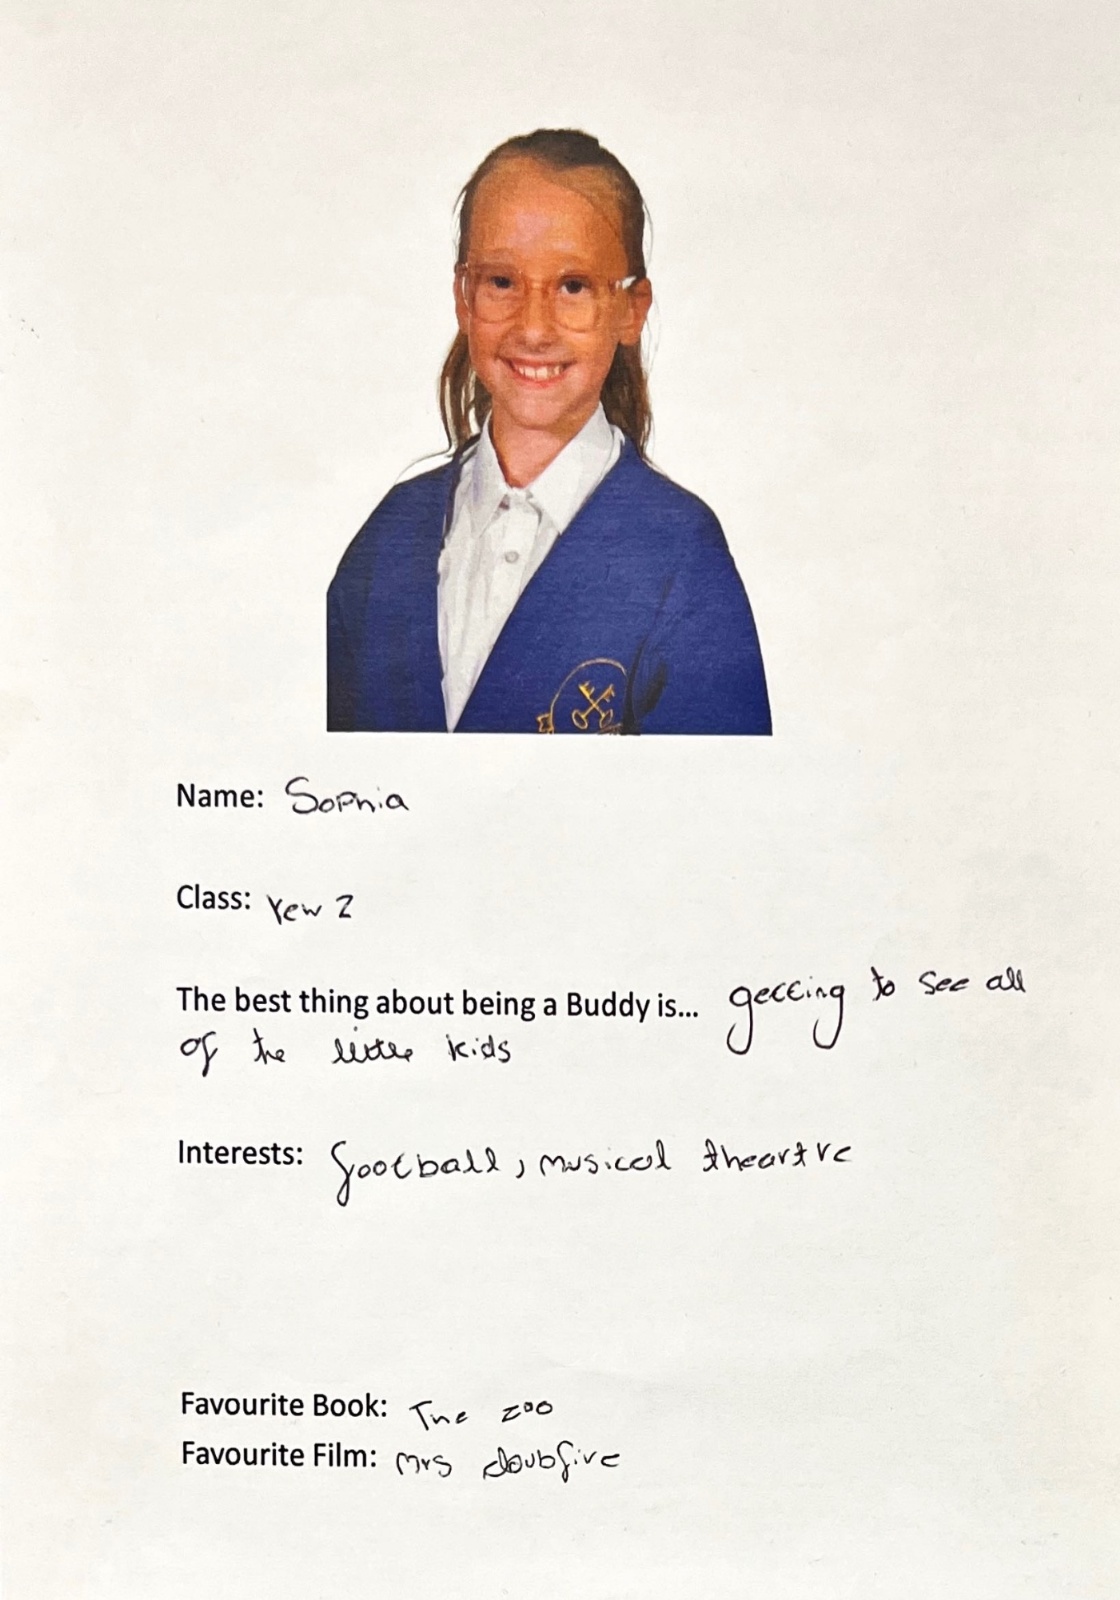 Name: Sophia
Class: Yew 2
The best thing about being a Buddy is... getting to see all
of the little kids
Interests: football, musical theartre
Favourite Book: The zoo
Favourite Film: Mrs doubfire